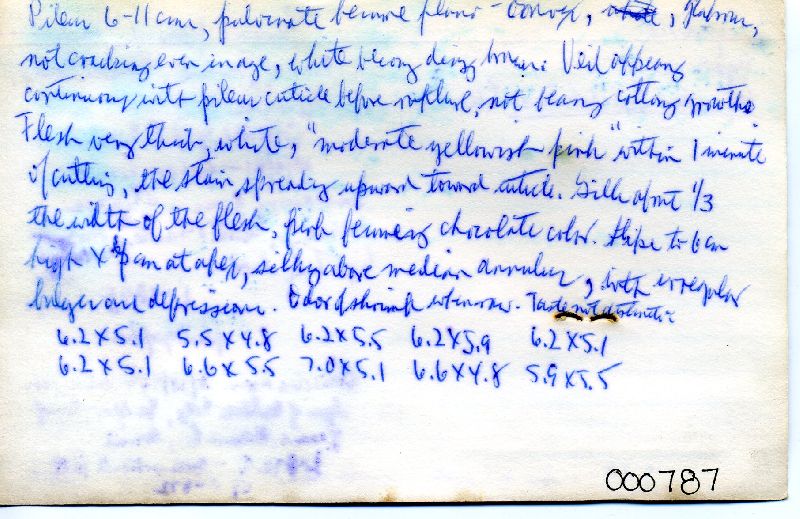 Pileus 6-11 cm, pulvinate become plano-convex, white, glabrous,
not cracking even in age, white becomg dingy brown. Veil appears
continuous with pileus cuticle before rupture, not bearing cottony growths
Flesh very thick, white, "moderate yellowish pink" within 1 minute
of cutting, the stain spreading upward toward cuticle. Gills about 1/3
the width of the flesh, pink becoming chocolate color. Stipe to 6 cm
high X cm at apex, silky above median annulus, with irregular
bulges and depressions. Odor of shrimp when raw. Taste not distinctive
6.2 X 5.1 5.5 X 4.8 6.2 X 5.5 6.2 X 5.9 6.2 X 5.1
6.2 X 5.1 6.6 X 5.5 7.0 X 5.1 6.6 X 4.8 5.9 X 5.5
000787